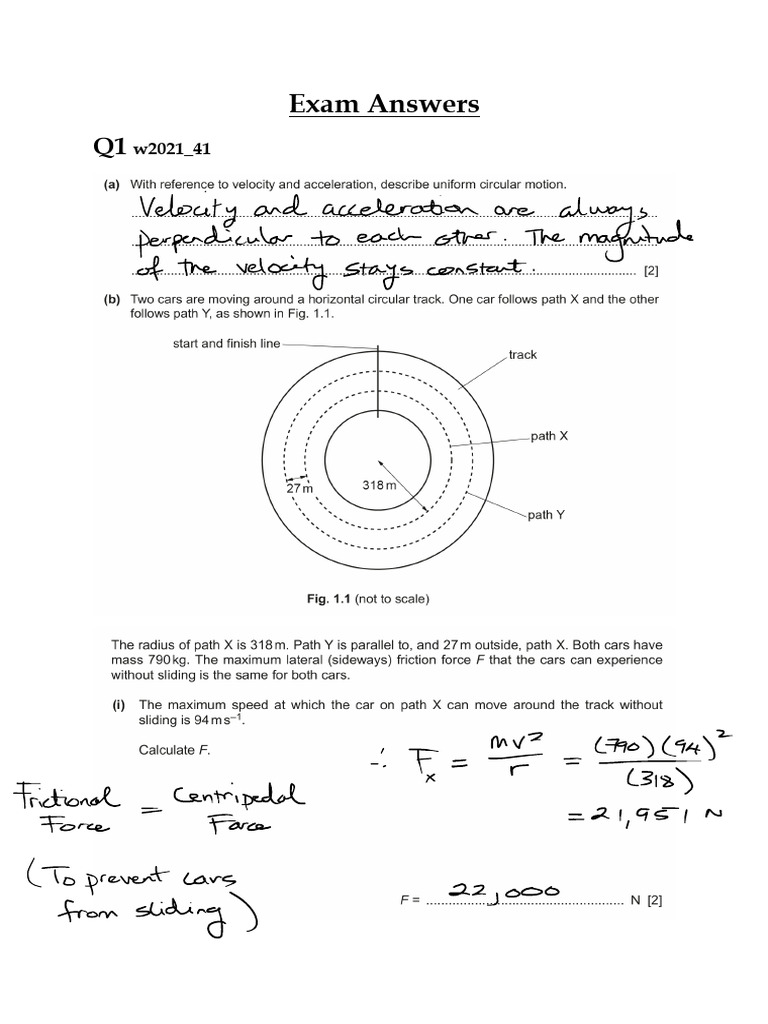 Exam Answers
Q1 w2021_41
(a) With reference to velocity and acceleration, describe uniform circular motion.
Velocity and acceleration are always
perpendicular to each other. The magnitude
of the velocity stays constant. [2]
(b) Two cars are moving around a horizontal circular track. One car follows path X and the other
follows path Y, as shown in Fig. 1.1.
start and finish line
track
path X
27 m
318 m
path Y
Fig. 1.1 (not to scale)
The radius of path X is 318 m. Path Y is parallel to, and 27 m outside, path X. Both cars have
mass 790 kg. The maximum lateral (sideways) friction force F that the cars can experience
without sliding is the same for both cars.
(i) The maximum speed at which the car on path X can move around the track without
sliding is 94 m s⁻¹.
Calculate F.
∴ Fₓ = mv²/r = (790)(94)²/(318)
= 21,951 N
Frictional Force = Centripedal Farce
(To prevent cars
from sliding)
F = 22,000 N [2]